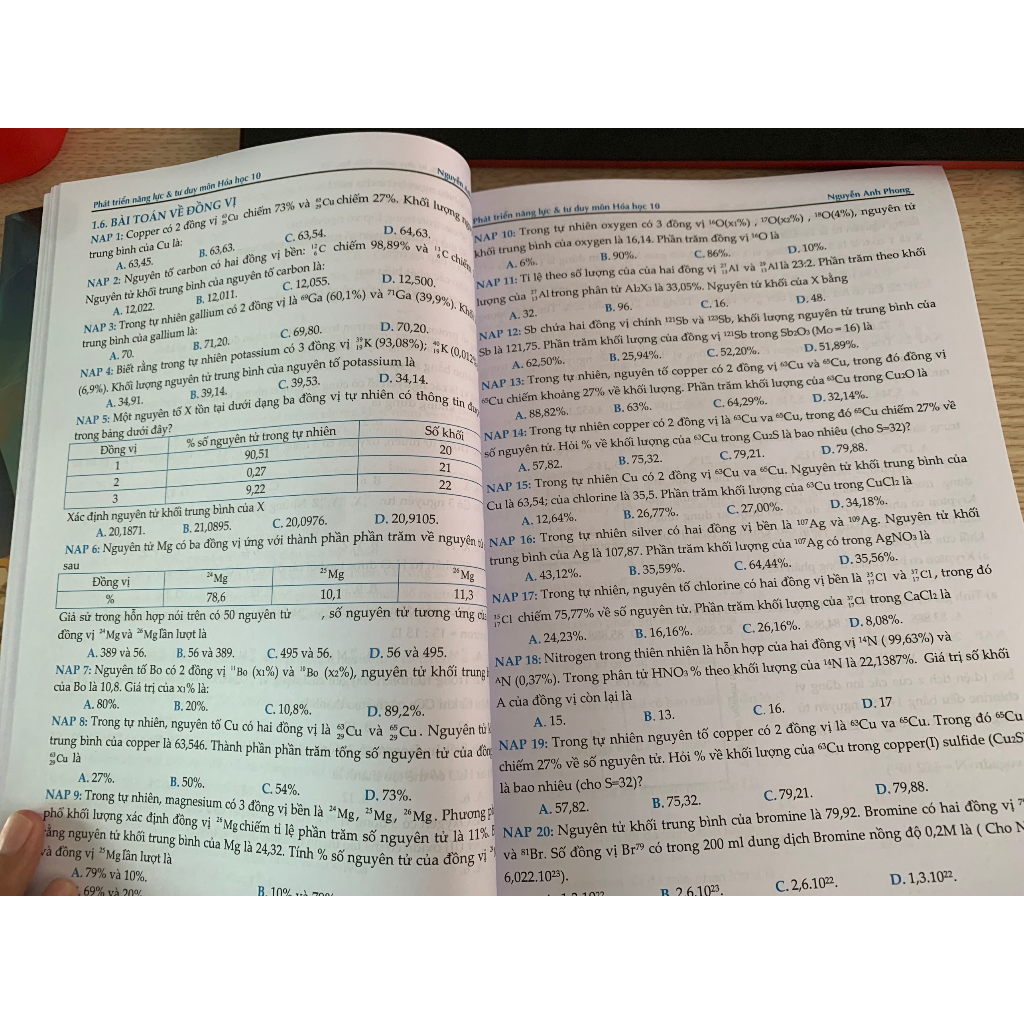 Phát triển năng lực & tư duy môn Hóa học 10
1.6. BÀI TOÁN VỀ ĐỒNG VỊ
NAP 1: Copper có 2 đồng vị Cu chiếm 73% và Cu chiếm 27%. Khối lượng
trung bình của Cu là:
A. 63,45. B. 63,63. C. 63,54. D. 64,63.
NAP 2: Nguyên tố carbon có hai đồng vị bền: ¹²₆C chiếm 98,89% và ¹³₆C chiếm
Nguyên tử khối trung bình của nguyên tố carbon là:
A. 12,022. B. 12,011. C. 12,055. D. 12,500.
NAP 3: Trong tự nhiên gallium có 2 đồng vị là ⁶⁹Ga (60,1%) và ⁷¹Ga (39,9%).
trung bình của gallium là:
A. 70. B. 71,20. C. 69,80. D. 70,20.
NAP 4: Biết rằng trong tự nhiên potassium có 3 đồng vị ³⁹₁₉K (93,08%); ⁴⁰₁₉K (0,012%
(6,9%). Khối lượng nguyên tử trung bình của nguyên tố potassium là
A. 34,91. B. 39,14. C. 39,53. D. 34,14.
NAP 5: Một nguyên tố X tồn tại dưới dạng ba đồng vị tự nhiên có thông tin
trong bảng dưới đây?
Đồng vị % số nguyên tử trong tự nhiên Số khối
1 90,51 20
2 0,27 21
3 9,22 22
Xác định nguyên tử khối trung bình của X
A. 20,1871. B. 21,0895. C. 20,0976. D. 20,9105.
NAP 6: Nguyên tử Mg có ba đồng vị ứng với thành phần phần trăm về nguyên
sau
Đồng vị ²⁴Mg ²⁵Mg ²⁶Mg
% 78,6 10,1 11,3
Giả sử trong hỗn hợp nói trên có 50 nguyên tử , số nguyên tử tương ứng của
đồng vị ²⁴Mg và ²⁶Mg lần lượt là
A. 389 và 56. B. 56 và 389. C. 495 và 56. D. 56 và 495.
NAP 7: Nguyên tố Bo có 2 đồng vị ¹¹Bo (x₁%) và ¹⁰Bo (x₂%), nguyên tử khối trung
của Bo là 10,8. Giá trị của x₁% là:
A. 80%. B. 20%. C. 10,8%. D. 89,2%.
NAP 8: Trong tự nhiên, nguyên tố Cu có hai đồng vị là ⁶³₂₉Cu và ⁶⁵₂₉Cu. Nguyên tử
trung bình của copper là 63,546. Thành phần phần trăm tổng số nguyên tử của đồng
⁶³₂₉Cu là
A. 27%. B. 50%. C. 54%. D. 73%.
NAP 9: Trong tự nhiên, magnesium có 3 đồng vị bền là ²⁴Mg, ²⁵Mg, ²⁶Mg. Phương
phổ khối lượng xác định đồng vị ²⁶Mg chiếm tỉ lệ phần trăm số nguyên tử là 11%.
rằng nguyên tử khối trung bình của Mg là 24,32. Tính % số nguyên tử của đồng vị
và đồng vị ²⁵Mg lần lượt là
A. 79% và 10%. B. 10% và
69% và 20%
Phát triển năng lực & tư duy môn Hóa học 10 Nguyễn Anh Phong
NAP 10: Trong tự nhiên oxygen có 3 đồng vị ¹⁶O(x₁%) , ¹⁷O(x₂%) , ¹⁸O(4%), nguyên tử
khối trung bình của oxygen là 16,14. Phần trăm đồng vị ¹⁶O là
A. 6%. B. 90%. C. 86%. D. 10%.
NAP 11: Tỉ lệ theo số lượng của của hai đồng vị Al và Al là 23:2. Phần trăm theo khối
lượng của Al trong phân tử Al₂X₃ là 33,05%. Nguyên tử khối của X bằng
A. 32. B. 96. C. 16. D. 48.
NAP 12: Sb chứa hai đồng vị chính ¹²¹Sb và ¹²³Sb, khối lượng nguyên tử trung bình của
Sb là 121,75. Phần trăm khối lượng của đồng vị ¹²¹Sb trong Sb₂O₃ (Mo = 16) là
A. 62,50%. B. 25,94%. C. 52,20%. D. 51,89%.
NAP 13: Trong tự nhiên, nguyên tố copper có 2 đồng vị ⁶³Cu và ⁶⁵Cu, trong đó đồng vị
⁶⁵Cu chiếm khoảng 27% về khối lượng. Phần trăm khối lượng của ⁶³Cu trong Cu₂O là
A. 88,82%. B. 63%. C. 64,29%. D. 32,14%.
NAP 14: Trong tự nhiên copper có 2 đồng vị là ⁶³Cu va ⁶⁵Cu, trong đó ⁶⁵Cu chiếm 27% về
số nguyên tử. Hỏi % về khối lượng của ⁶³Cu trong Cu₂S là bao nhiêu (cho S=32)?
A. 57,82. B. 75,32. C. 79,21. D. 79,88.
NAP 15: Trong tự nhiên Cu có 2 đồng vị ⁶³Cu va ⁶⁵Cu. Nguyên tử khối trung bình của
Cu là 63,54; của chlorine là 35,5. Phần trăm khối lượng của ⁶³Cu trong CuCl₂ là
A. 12,64%. B. 26,77%. C. 27,00%. D. 34,18%.
NAP 16: Trong tự nhiên silver có hai đồng vị bền là ¹⁰⁷Ag và ¹⁰⁹Ag. Nguyên tử khối
trung bình của Ag là 107,87. Phần trăm khối lượng của ¹⁰⁷Ag có trong AgNO₃ là
A. 43,12%. B. 35,59%. C. 64,44%. D. 35,56%.
NAP 17: Trong tự nhiên, nguyên tố chlorine có hai đồng vị bền là ³⁵₁₇Cl và ³⁷₁₇Cl, trong đó
³⁵₁₇Cl chiếm 75,77% về số nguyên tử. Phần trăm khối lượng của ³⁷₁₇Cl trong CaCl₂ là
A. 24,23%. B. 16,16%. C. 26,16%. D. 8,08%.
NAP 18: Nitrogen trong thiên nhiên là hỗn hợp của hai đồng vị ¹⁴N ( 99,63%) và
ᴬN (0,37%). Trong phân tử HNO₃ % theo khối lượng của ¹⁴N là 22,1387%. Giá trị số khối
A của đồng vị còn lại là
A. 15. B. 13. C. 16. D. 17
NAP 19: Trong tự nhiên nguyên tố copper có 2 đồng vị là ⁶³Cu va ⁶⁵Cu. Trong đó ⁶⁵Cu
chiếm 27% về số nguyên tử. Hỏi % về khối lượng của ⁶³Cu trong copper(I) sulfide (Cu₂S
là bao nhiêu (cho S=32)?
A. 57,82. B. 75,32. C. 79,21. D. 79,88.
NAP 20: Nguyên tử khối trung bình của bromine là 79,92. Bromine có hai đồng vị
và ⁸¹Br. Số đồng vị Br⁷⁹ có trong 200 ml dung dịch Bromine nồng độ 0,2M là ( Cho
6,022.10²³).
B. 2,6.10²³. C. 2,6.10²². D. 1,3.10²².